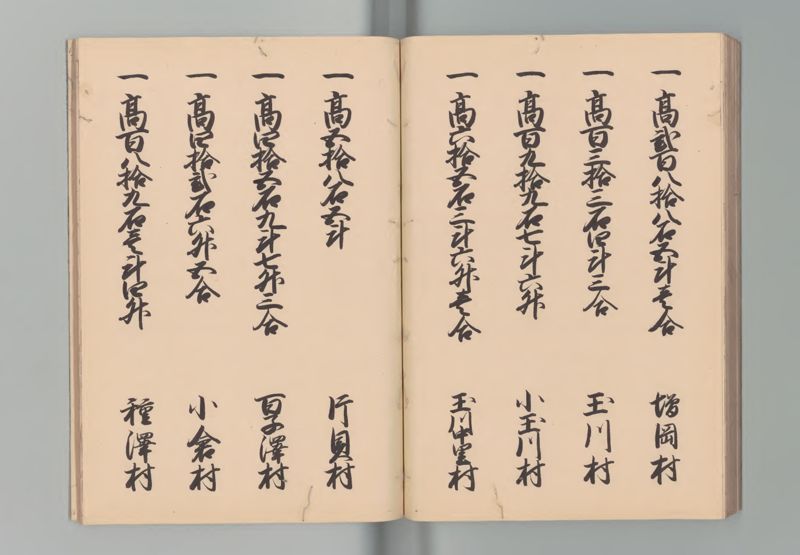 一 高弐百八拾八石五斗壱合 増岡村
一 高百三拾三石四斗三合 玉川村
一 高百九拾九石七斗六升 小玉川村
一 高六拾五石三斗六升壱合 玉川中里村
一 高五拾八石五斗 片貝村
一 高四拾五石九斗七升三合 百子澤村
一 高四拾弐石六升五合 小倉村
一 高百八拾九石壱斗四升 種澤村